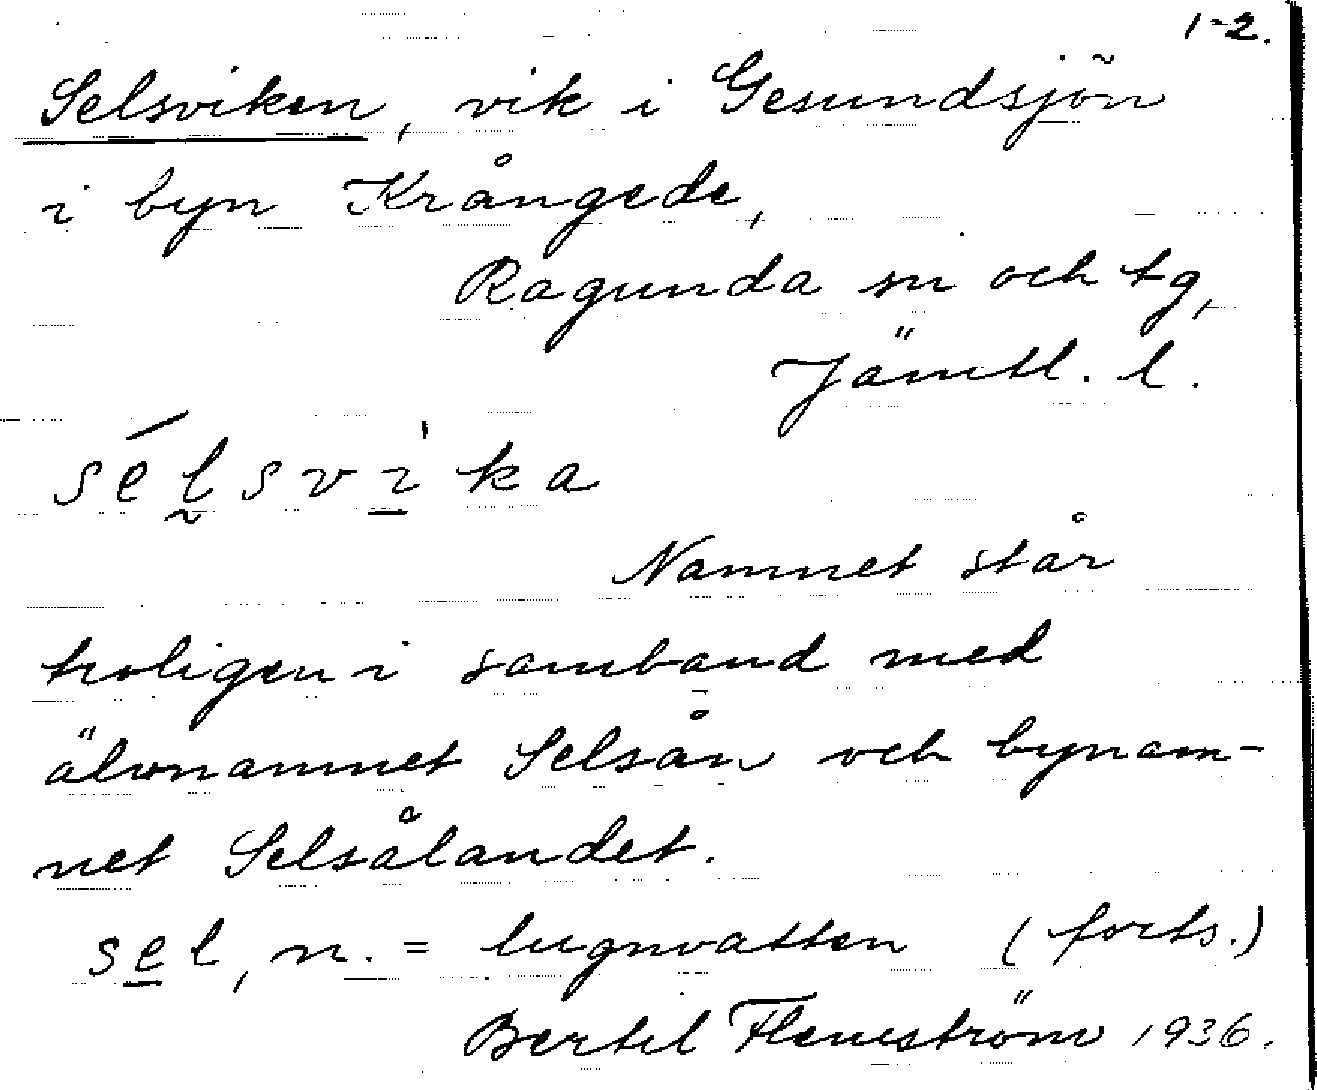 1-2.
Selsviken, vik i Gesundsjön
i byn Krångede,
Ragunda sn och tg,
Jämtl. l.
sél̰svi̱̍ka
Namnet står
troligen i samband med
älvnamnet Selsån och bynam-
net Selsålandet.
se̱l, n. = lugnvatten (forts.)
Bertil Flemström 1936.